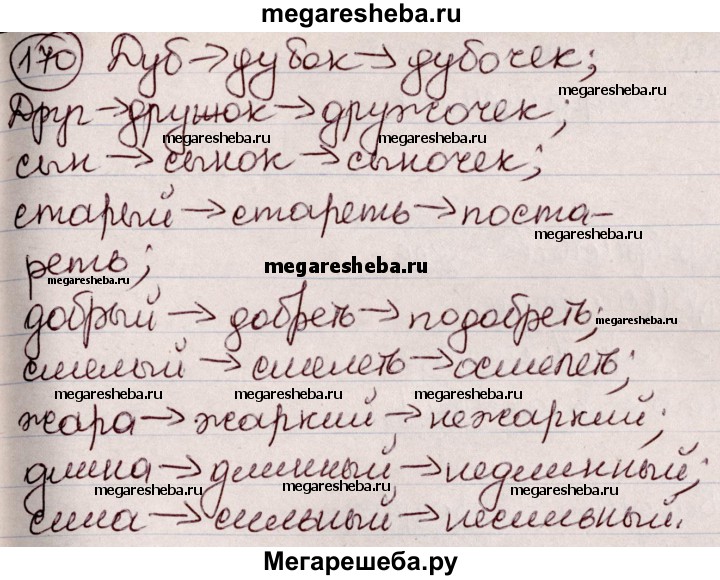 megaresheba.ru
170 Дуб→дубок→дубочек;
megaresheba.ru
Друг→дружок→дружочек;
megaresheba.ru
megaresheba.ru
сын→сынок→сыночек;
старый→стареть→поста-
megaresheba.ru
реть;
megaresheba.ru
megaresheba.ru
добрый→добреть→подобреть;
megaresheba.ru
смелый→смелеть→осмелеть;
megaresheba.ru
megaresheba.ru
жара→жаркий→нежаркий;
длина→длинный→недлинный;
megaresheba.ru
megaresheba.ru
megaresheba.ru
сила→сильный→несильный.
Мегарешеба.ру